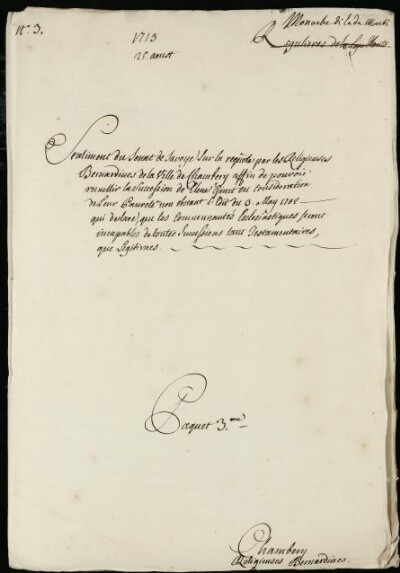 N.° 3.
Monache di là da Monti
1713
25. aoust
Sentiment du Senat de Savoye sur la reqûete par les Religieuses
Bernardines de la Ville de Chambery affin de pouvoir
recuillir la succession de en consideration
de leur Pauvreté non obstant l'Edit du 3. May 1702
qui declare, que les Communautés Ecclesiastiques seront
incapables de toutes successions tant Testamentaires,
que Legitimes.
Paquet 3.me
Chambery
Religieuses Bernardines.